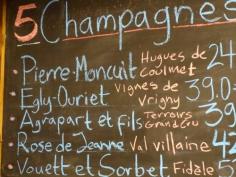 5 Champagnes
• Pierre Moncuit Hugues de Coulmet 24
• Egly-Ouriet Vignes de Vrigny 39.0
• Agrapart et fils Terroirs Grand Cru 39.
• Rose de Jeanne Val villaine 42
• Vouett et Sorbet Fidèle 5